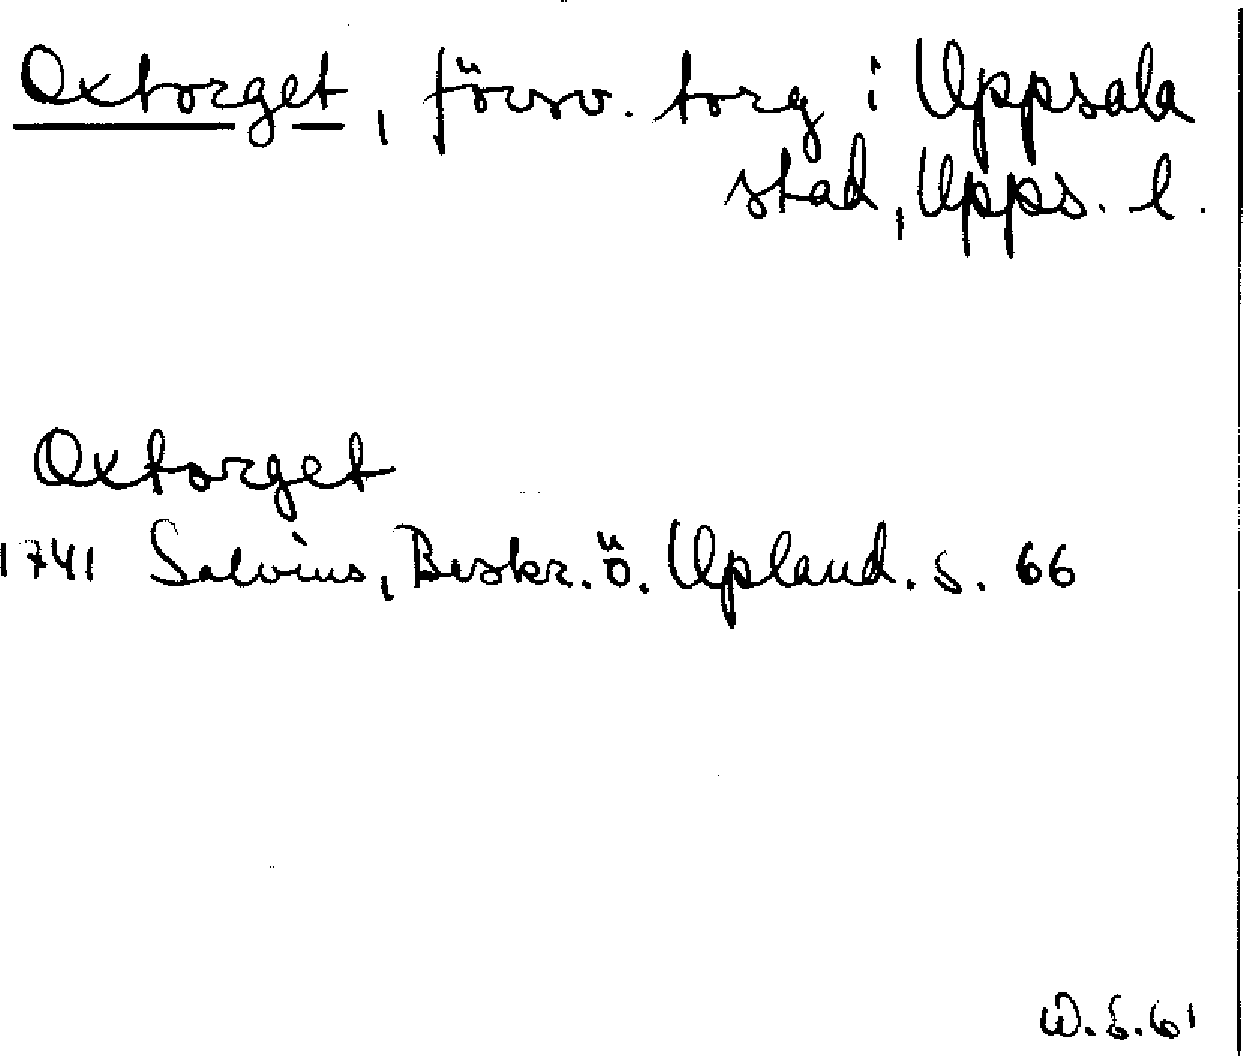 Oxtorget, försv. torg i Uppsala
stad, Upps. l.
Oxtorget
1741 Salvius, Beskr. ö. Upland. s. 66
W.S.61